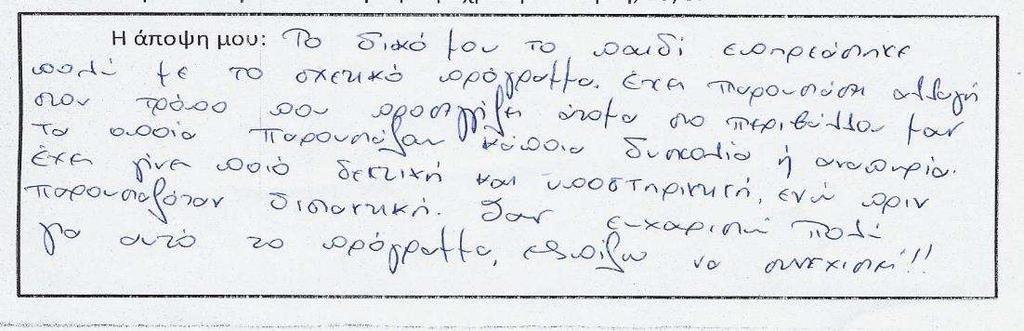 Η άποψη μου: Το δικό μου το παιδί επηρεάστηκε
πολύ με το σχετικό πρόγραμμα. Έχει παρουσιάσει αλλαγή
στον τρόπο που προσεγγίζει άτομα στο περιβάλλον μας
τα οποία παρουσιάζαν κάποια δυσκολία ή αναπηρία.
Έχει γίνει ποιό δεκτική και υποστηρικτική, ενώ πριν
παρουσιαζόταν διστακτική. Σας ευχαριστώ πολύ
για αυτό το πρόγραμμα, ελπίζω να συνεχιστεί!!